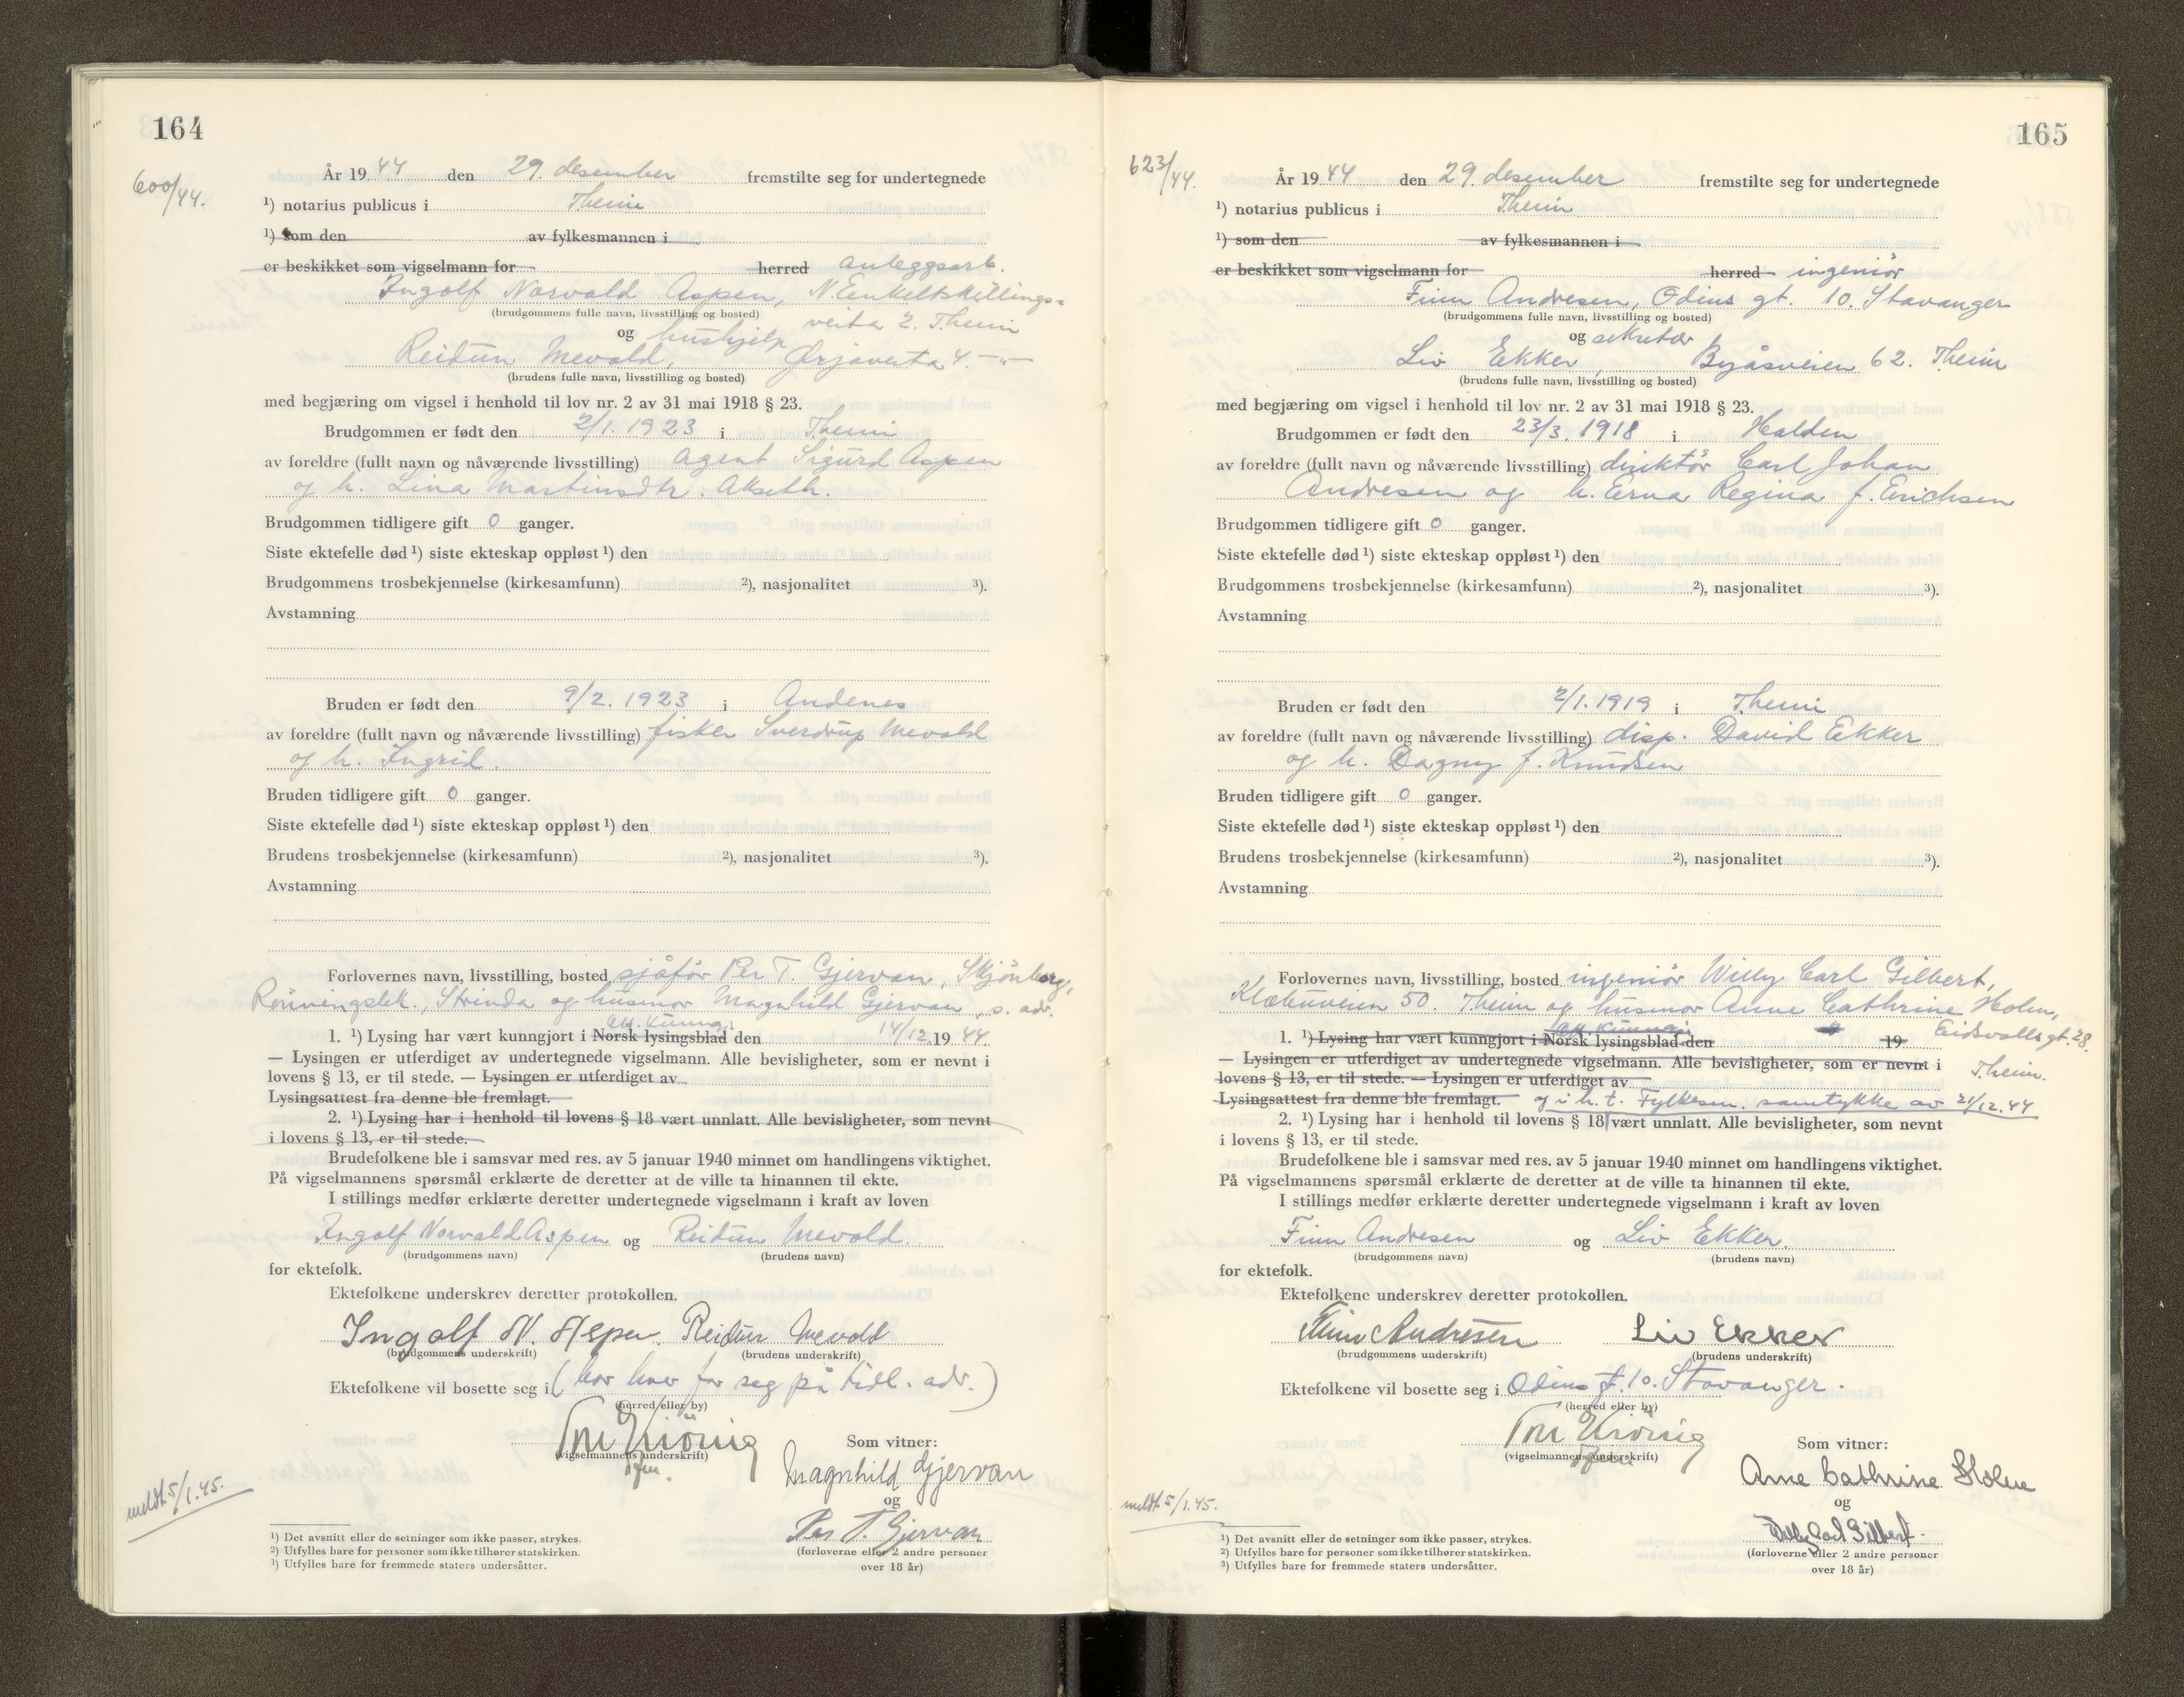 164
600/44.
År 19 44 den 29. desember fremstilte seg for undertegnede
¹) notarius publicus i Theim
¹) som den av fylkesmannen i
er beskikket som vigselmann for herred anleggsarb.
Ingolf Norvald Aspen, N. Enkeltskillings-
(brudgommens fulle navn, livsstilling og bosted)
veita 2. Theim
og hushjelp
Reidun Mevold, Ørjaveita 4. -"-
(brudens fulle navn, livsstilling og bosted)
med begjæring om vigsel i henhold til lov nr. 2 av 31 mai 1918 § 23.
Brudgommen er født den 2/1. 1923 i Theim
av foreldre (fullt navn og nåværende livsstilling) agent Sigurd Aspen
og h. Lina Martinsdtr. Akseth.
Brudgommen tidligere gift 0 ganger.
Siste ektefelle død ¹) siste ekteskap oppløst ¹) den
Brudgommens trosbekjennelse (kirkesamfunn) ²), nasjonalitet ³).
Avstamning
Bruden er født den 9/2. 1923 i Andenes
av foreldre (fullt navn og nåværende livsstilling) fisker Sverdrup Mevold
og h. Ingrid.
Bruden tidligere gift 0 ganger.
Siste ektefelle død ¹) siste ekteskap oppløst ¹) den
Brudens trosbekjennelse (kirkesamfunn) ²), nasjonalitet ³).
Avstamning
Forlovernes navn, livsstilling, bosted sjåfør Per T. Gjervan, Skjönberg,
Strinda og husmor Magnhild Gjervan, s. adr.
1. ¹) Lysing har vært kunngjort i Norsk lysingsblad den 14/12. 19 44.
— Lysingen er utferdiget av undertegnede vigselmann. Alle bevisligheter, som er nevnt i
lovens § 13, er til stede. — Lysingen er utferdiget av
Lysingsattest fra denne ble fremlagt.
2. ¹) Lysing har i henhold til lovens § 18 vært unnlatt. Alle bevisligheter, som nevnt
i lovens § 13, er til stede.
Brudefolkene ble i samsvar med res. av 5 januar 1940 minnet om handlingens viktighet.
På vigselmannens spørsmål erklærte de deretter at de ville ta hinannen til ekte.
I stillings medfør erklærte deretter undertegnede vigselmann i kraft av loven
Ingolf Norvald Aspen og Reidun Mevold.
(brudgommens navn) (brudens navn)
for ektefolk.
Ektefolkene underskrev deretter protokollen.
Ingolf N. Aspen. Reidun Mevold
(brudgommens underskrift) (brudens underskrift)
Ektefolkene vil bosette seg i (bor hver for seg på tidl. adr.)
(herred eller by)
(vigselmannens underskrift)
Som vitner:
Magnhild Gjervan
og
Per T. Gjervan
(forloverne eller 2 andre personer
over 18 år)
meldt 5/1.45.
¹) Det avsnitt eller de setninger som ikke passer, strykes.
²) Utfylles bare for personer som ikke tilhører statskirken.
³) Utfylles bare for fremmede staters undersåtter.
165
623/44.
År 19 44 den 29. desember fremstilte seg for undertegnede
¹) notarius publicus i Theim
¹) som den av fylkesmannen i
er beskikket som vigselmann for herred ingeniör
Finn Andresen, Odins gt. 10. Stavanger
(brudgommens fulle navn, livsstilling og bosted)
og sekretær
Liv Ekker, Byåsveien 62. Theim
(brudens fulle navn, livsstilling og bosted)
med begjæring om vigsel i henhold til lov nr. 2 av 31 mai 1918 § 23.
Brudgommen er født den 23/3. 1918 i Halden
av foreldre (fullt navn og nåværende livsstilling) direktör Carl Johan
Andresen og h. Erna Regina f. Erichsen
Brudgommen tidligere gift 0 ganger.
Siste ektefelle død ¹) siste ekteskap oppløst ¹) den
Brudgommens trosbekjennelse (kirkesamfunn) ²), nasjonalitet ³).
Avstamning
Bruden er født den 2/1. 1919 i Theim
av foreldre (fullt navn og nåværende livsstilling) disp. David Ekker
og h. Dagny f. Knudsen
Bruden tidligere gift 0 ganger.
Siste ektefelle død ¹) siste ekteskap oppløst ¹) den
Brudens trosbekjennelse (kirkesamfunn) ²), nasjonalitet ³).
Avstamning
Forlovernes navn, livsstilling, bosted ingeniör Willy Carl Gilbert,
Klæbuveien 50. Theim og husmor Anne Cathrine Holm,
Eidsvolls gt. 28.
Theim.
1. ¹) Lysing har vært kunngjort i Norsk lysingsblad den 19
— Lysingen er utferdiget av undertegnede vigselmann. Alle bevisligheter, som er nevnt i
lovens § 13, er til stede. — Lysingen er utferdiget av
Lysingsattest fra denne ble fremlagt. og i h. t. Fylkesm. samtykke av 21/12.44
2. ¹) Lysing har i henhold til lovens § 18 vært unnlatt. Alle bevisligheter, som nevnt
i lovens § 13, er til stede.
Brudefolkene ble i samsvar med res. av 5 januar 1940 minnet om handlingens viktighet.
På vigselmannens spørsmål erklærte de deretter at de ville ta hinannen til ekte.
I stillings medfør erklærte deretter undertegnede vigselmann i kraft av loven
Finn Andresen og Liv Ekker.
(brudgommens navn) (brudens navn)
for ektefolk.
Ektefolkene underskrev deretter protokollen.
Finn Andresen Liv Ekker
(brudgommens underskrift) (brudens underskrift)
Ektefolkene vil bosette seg i Odins gt. 10. Stavanger.
(herred eller by)
(vigselmannens underskrift)
Som vitner:
Anne Cathrine Holm
og
Willy Carl Gilbert.
(forloverne eller 2 andre personer
over 18 år)
meldt 5/1.45.
¹) Det avsnitt eller de setninger som ikke passer, strykes.
²) Utfylles bare for personer som ikke tilhører statskirken.
³) Utfylles bare for fremmede staters undersåtter.